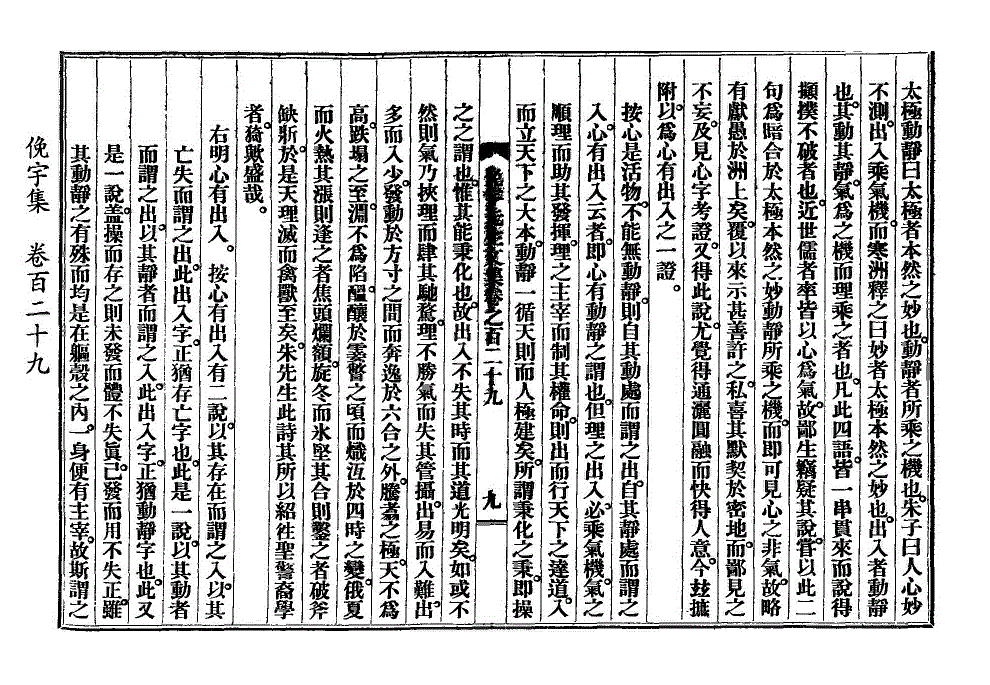 太極動靜曰太極者本然之妙也動靜者所乘之機也朱子曰人心妙
不測出入乘氣機而寒洲釋之曰妙者太極本然之妙也出入者動靜
也其動其靜氣爲之機而理乘之者也凡此四語皆一串貫來而說得
顚撲不破者也近世儒者率皆以心爲氣故鄙生竊疑其說嘗以此二
句爲暗合於太極本然之妙動靜所乘之機而即可見心之非氣故略
有獻愚於洲上矣覆以來示甚善許之私喜其默契於密地而鄙見之
不妄及見心字考證又得此說尤覺得通灑圓融而快得人意今玆摭
附以爲心有出入之一證
按心是活物不能無動靜則自其動處而謂之出自其靜處而謂之
入心有出入云者即心有動靜之謂也但理之出入必乘氣機氣之
順理而助其發揮理之主宰而制其權命則出而行天下之達道入
而立天下之大本動靜一循天則而人極建矣所謂秉化之秉即操
之百二十九 九
之之謂也惟其能秉化也故出入不失其時而其道光明矣如或不
然則氣乃挾理而肆其馳騖理不勝氣而失其管攝出易而入難出
多而入少發動於方寸之間而奔逸於六合之外騰翥之極天不爲
高跌塌之至淵不爲陷醞釀於霎瞥之頃而熾沍於四時之變俄夏
而火熱其漲則逢之者焦頭爛額旋冬而氷堅其合則鑿之者破斧
缺斨於是天理滅而禽獸至矣朱先生此詩其所以紹徃聖警裔學
者猗歟盛哉
右明心有出入 按心有出入有二說以其存在而謂之入以其
亡失而謂之出此出入字正猶存亡字也此是一說以其動者
而謂之出以其靜者而謂之入此出入字正猶動靜字也此又
是一說盖操而存之則未發而體不失眞已發而用不失正雖
其動靜之有殊而均是在軀殼之內一身便有主宰故斯謂之
俛宇集 卷百二十九